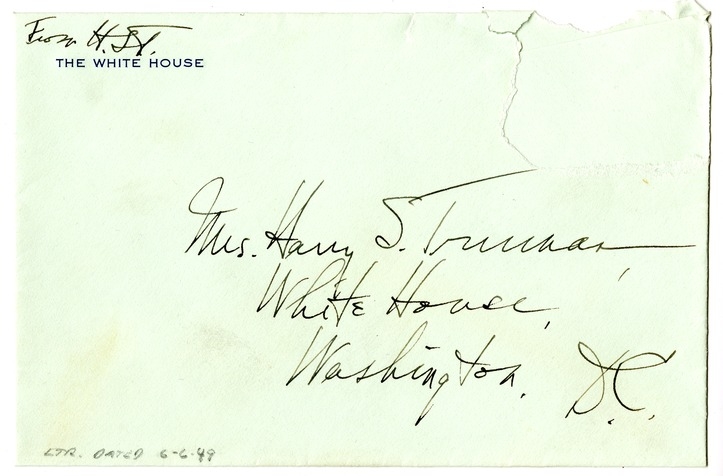 From H.S.T.
THE WHITE HOUSE
Mrs. Harry S. Truman,
White House,
Washington, D.C.
LTR. DATED 6-6-49